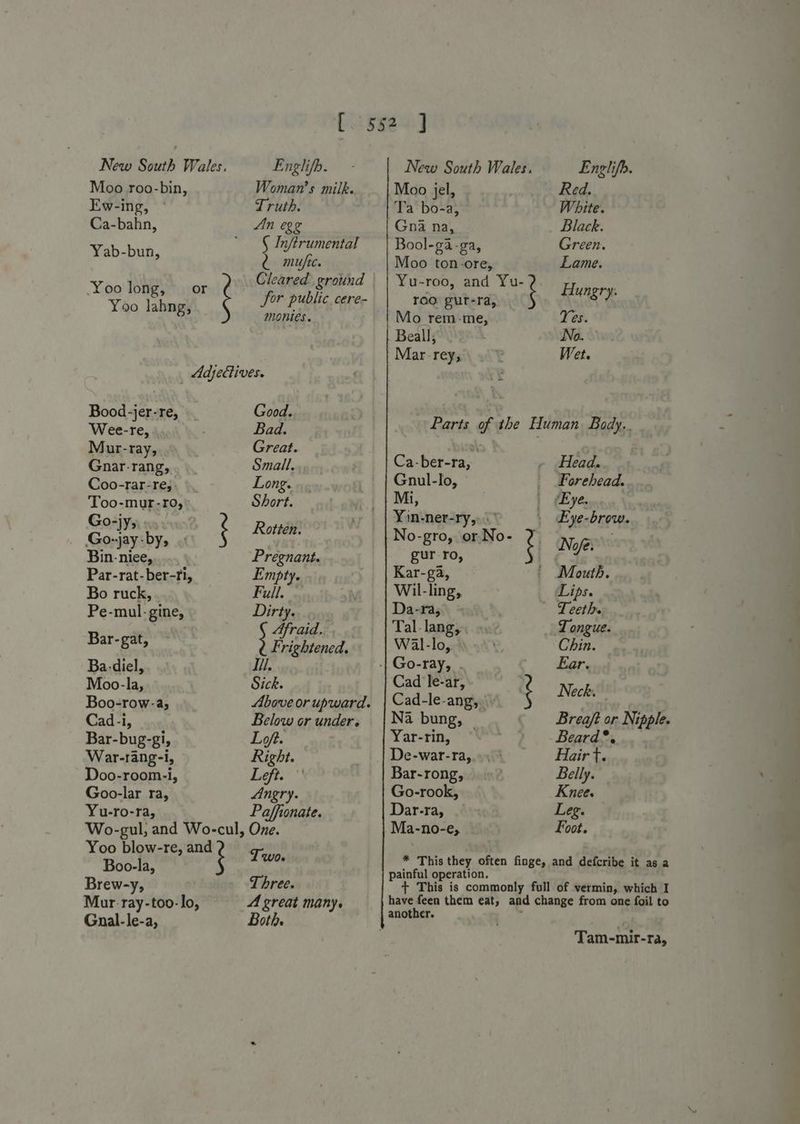 [ 552 ]
New South Wales. Engliſh.
Moo roo-bin, Woman's milk.
Ew-ing, Truth.
Ca-bahn, An egg
Yab-bun, { Inſtrumental muſic.
Yoo long, or Yoo lahng, } Cleared ground for public ceremonies.
Adjectives.
Bood-jer-re, Good.
Wee-re, Bad.
Mur-ray, Great.
Gnar-rang, Small.
Coo-rar-re, Long.
Too-mur-ro, Short.
Go-jy, Go-jay-by, } Rotten.
Bin-niee, Pregnant.
Par-rat-ber-ri, Empty.
Bo ruck, Full.
Pe-mul-gine, Dirty.
Bar-gat, { Afraid. Frightened.
Ba-diel, Ill.
Moo-la, Sick.
Boo-row-a, Above or upward.
Cad-i, Below or under.
Bar-bug-gi, Loſt.
War-râng-i, Right.
Doo-room-i, Left.
Goo-lar ra, Angry.
Yu-ro-ra, Paſſionate.
Wo-gul, and Wo-cul, One.
Yoo blow-re, and Boo-la, } Two.
Brew-y, Three.
Mur-ray-too-lo, A great many.
Gnal-le-a, Both.
New South Wales. Engliſh.
Moo jel, Red.
Ta bo-a, White.
Gnâ na, Black.
Bool-gâ-ga, Green.
Moo ton-ore, Lame.
Yu-roo, and Yu-roo gur-ra, } Hungry.
Mo rem-me, Yes.
Beall, No.
Mar-rey, Wet.
Parts of the Human Body.
Ca-ber-ra, Head.
Gnul-lo, Forehead.
Mi, Eye.
Yin-ner-ry, Eye-brow.
No-gro, or No-gur-ro, } Noſe.
Kar-gâ, Mouth.
Wil-ling, Lips.
Da-ra, Teeth.
Tal-lang, Tongue.
Wâl-lo, Chin.
Go-ray, Ear.
Cad le-ar, Cad-le-ang, } Neck.
Nâ bung, Breaſt or Nipple.
Yar-rin, Beard*.
De-war-ra, Hair†.
Bar-rong, Belly.
Go-rook, Knee.
Dar-ra, Leg.
Ma-no-e, Foot.
* This they often ſinge, and deſcribe it as a
painful operation.
† This is commonly full of vermin, which I
have ſeen them eat, and change from one ſoil to
another.
Tam-mir-ra,